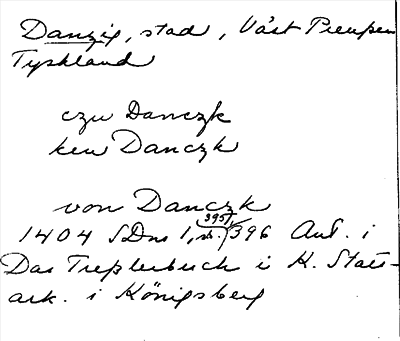 Danzig, stad, Väst Preussen
Tyskland
czu Danczk
ken Danczk
von Danczk
395/
1404 SDns 1, sh. 396 Ant. i
Das Treßlerbuch i K. Stats-
ark. i Königsberg